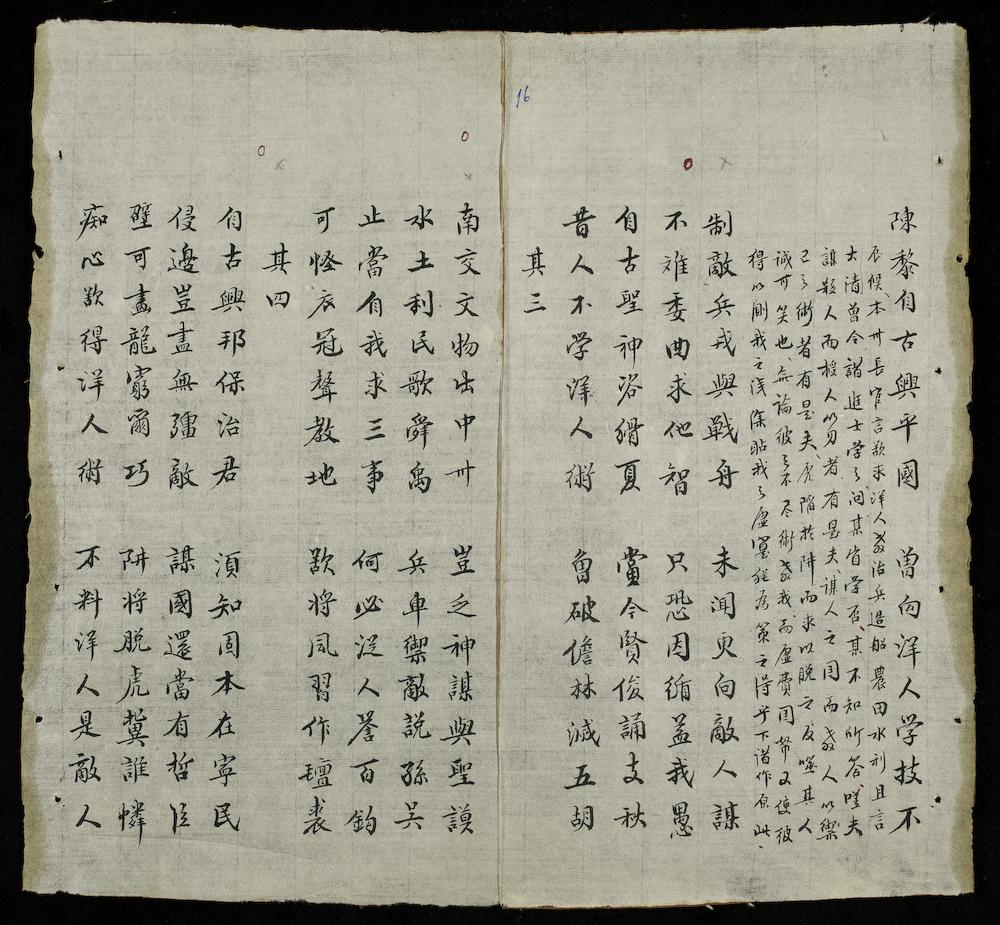 陳黎自古興平國　曾向洋人学技不
辰候、本卅長官言欲求洋人教治兵造船農田水利且言
大清曽令諸進士学之问某省学否、某不知所答嘆夫
謀敵人而授人以刃者、有是夫、謀人之国而教人以禦
己之術者有是夫、虎陷於阱而求以脱之反噬其人
誠可笑也、無論彼之不尽術教我而虛費国帑又使彼
得以測我之浅深貼我之虛寔
制敵兵戎與戰舟　未闻更向敵人謀
不难委曲求他智　只恐因循益我愚
自古聖神咨猾夏　當今賢俊誦支秋
昔人不学洋人術　魯破儋林滅五胡
其三
南交文物出中卅　豈乏神謀與聖謨
水土利民歌舜禹　兵車禦敵説孫吴
止當自我求三事　何必從人詧百鈞
可怪衣冠聲教地　歖将風習作氊裘
其四
自古興邦保治君　須知固本在寧民
侵邊豈盡無彊敵　謀國還當有哲臣
壁可畫龍窮爾巧　阱将脱虎冀誰憐
痴心歖得洋人術　不料洋人是敵人
16